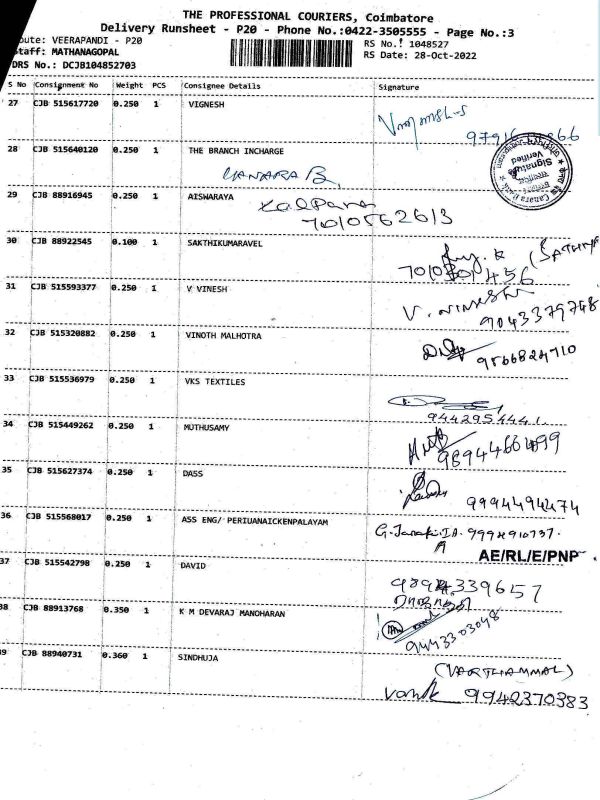 THE PROFESSIONAL COURIERS, Coimbatore
Delivery Runsheet - P20 - Phone No.:0422-3505555 - Page No.:3
oute: VEERAPANDI - P20
RS No.: 1048527
taff: MATHANAGOPAL
RS Date: 28-Oct-2022
DRS No.: DCJB104852703
S No Consignment No Weight PCS Consignee Details Signature
27 CJB 515617720 0.250 1 VIGNESH
28 CJB 515640120 0.250 1 THE BRANCH INCHARGE
CANARA B,
Signature Verified
29 CJB 88916945 0.250 1 AISWARAYA
Kalpana
7010562613
30 CJB 88922545 0.100 1 SAKTHIKUMARAVEL
31 CJB 515593377 0.250 1 V VINESH
9043379748
32 CJB 515320882 0.250 1 VINOTH MALHOTRA
9566824710
33 CJB 515536979 0.250 1 VKS TEXTILES
9442954441.
34 CJB 515449262 0.250 1 MUTHUSAMY
35 CJB 515627374 0.250 1 DASS
9994494474
36 CJB 515568017 0.250 1 ASS ENG/ PERIUANAICKENPALAYAM
G. Janaki
AE/RL/E/PNP
37 CJB 515542798 0.250 1 DAVID
9894339657
38 CJB 88913768 0.350 1 K M DEVARAJ MANOHARAN
9443303048
39 CJB 88940731 0.360 1 SINDHUJA
9942370383